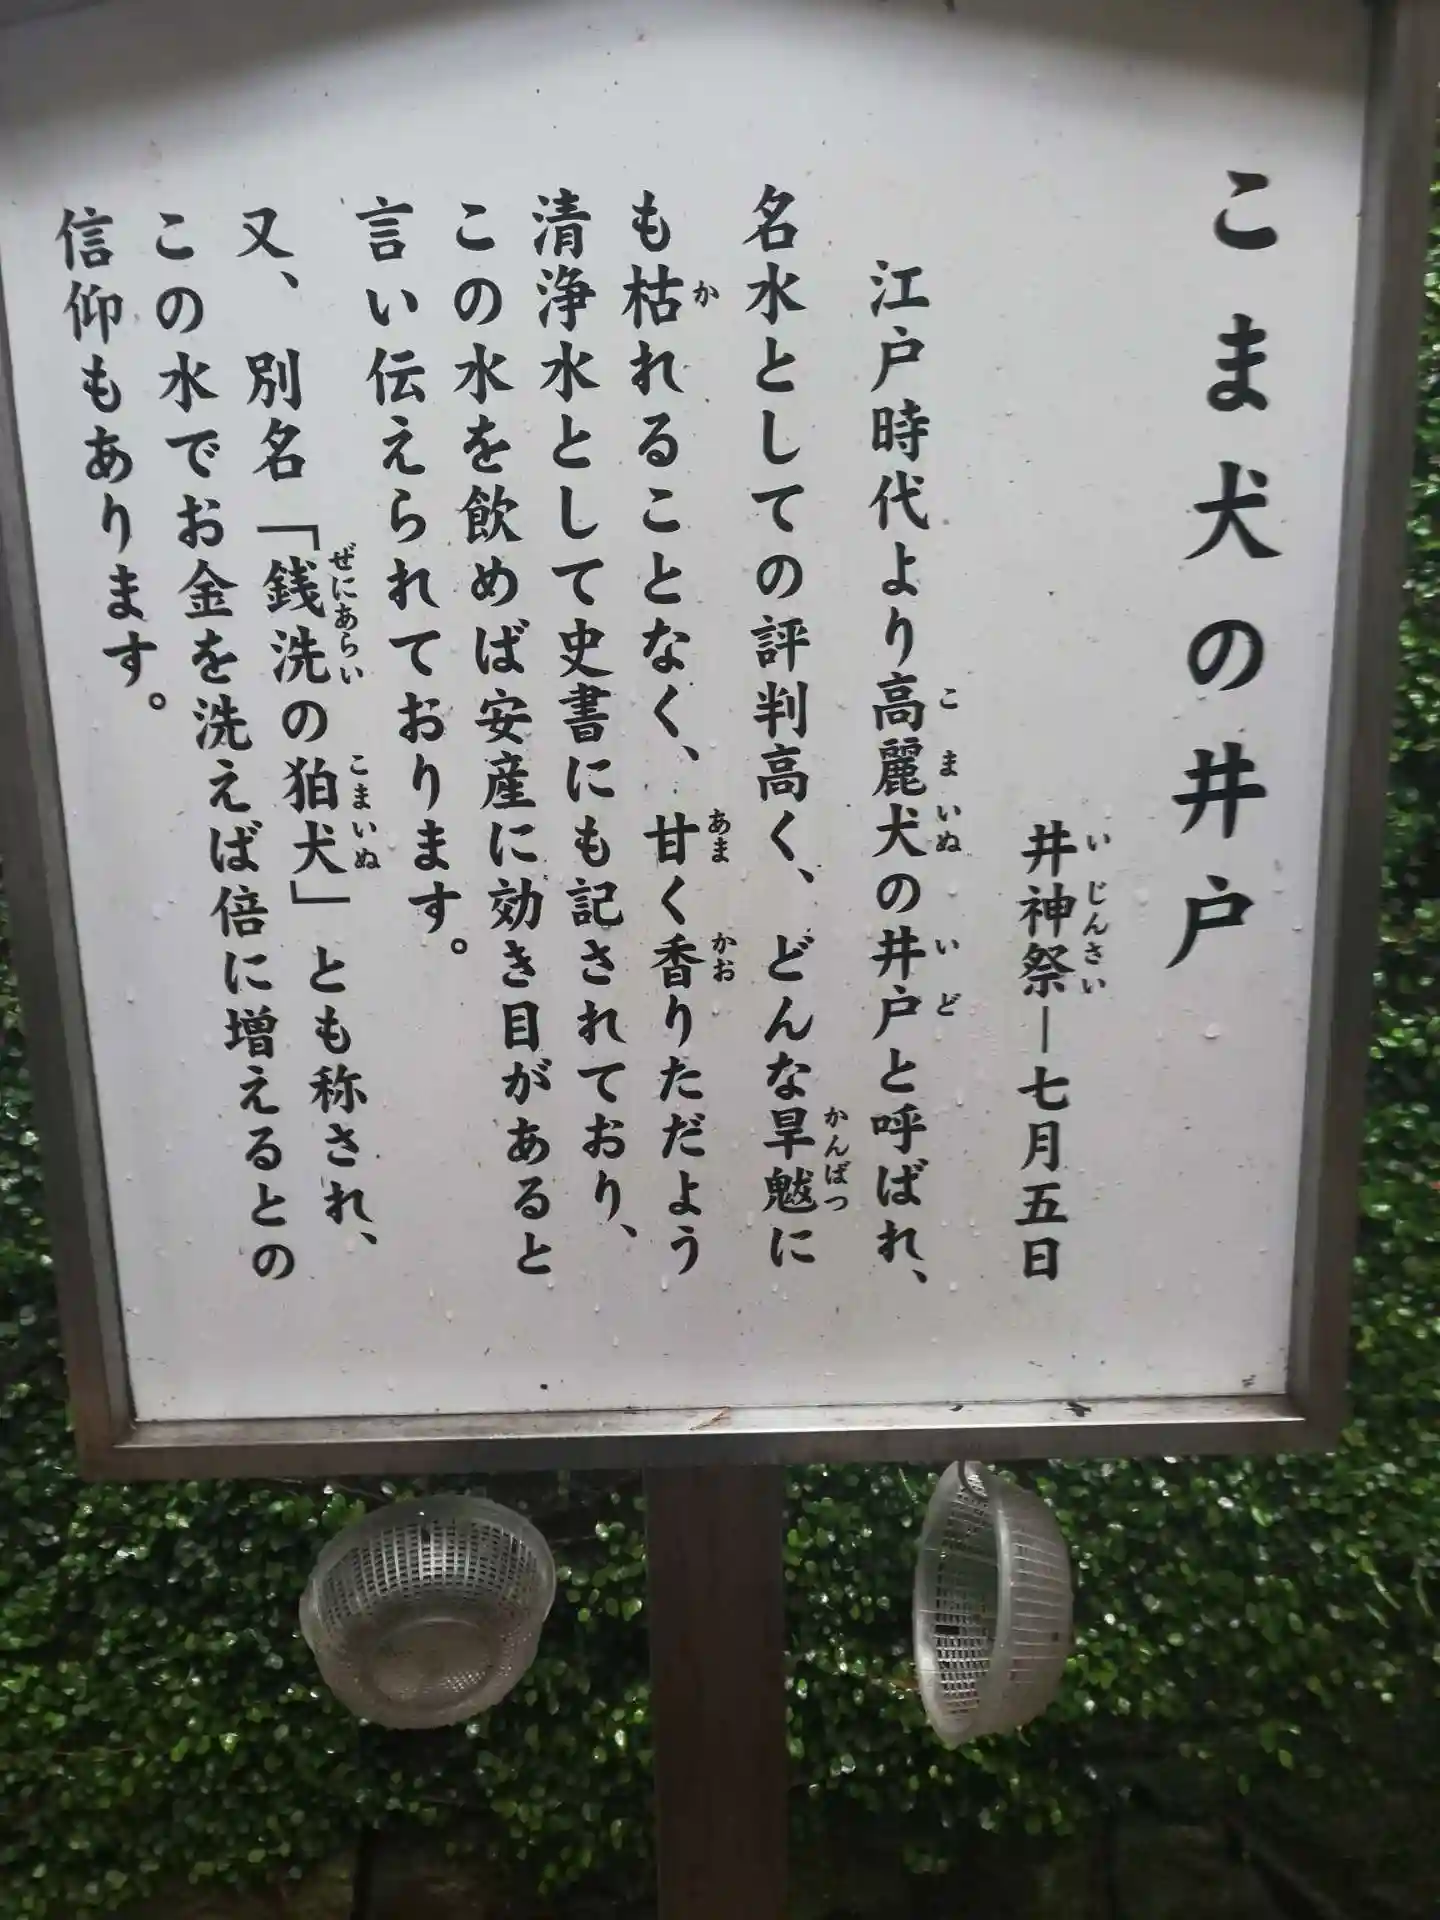 こま犬の井戸
井神祭―七月五日
江戸時代より高麗犬の井戸と呼ばれ、
名水としての評判高く、どんな旱魃に
も枯れることなく、甘く香りただよう
清浄水として史書にも記されており、
この水を飲めば安産に効き目があると
言い伝えられております。
又、別名「銭洗の狛犬」とも称され、
この水でお金を洗えば倍に増えるとの
信仰もあります。